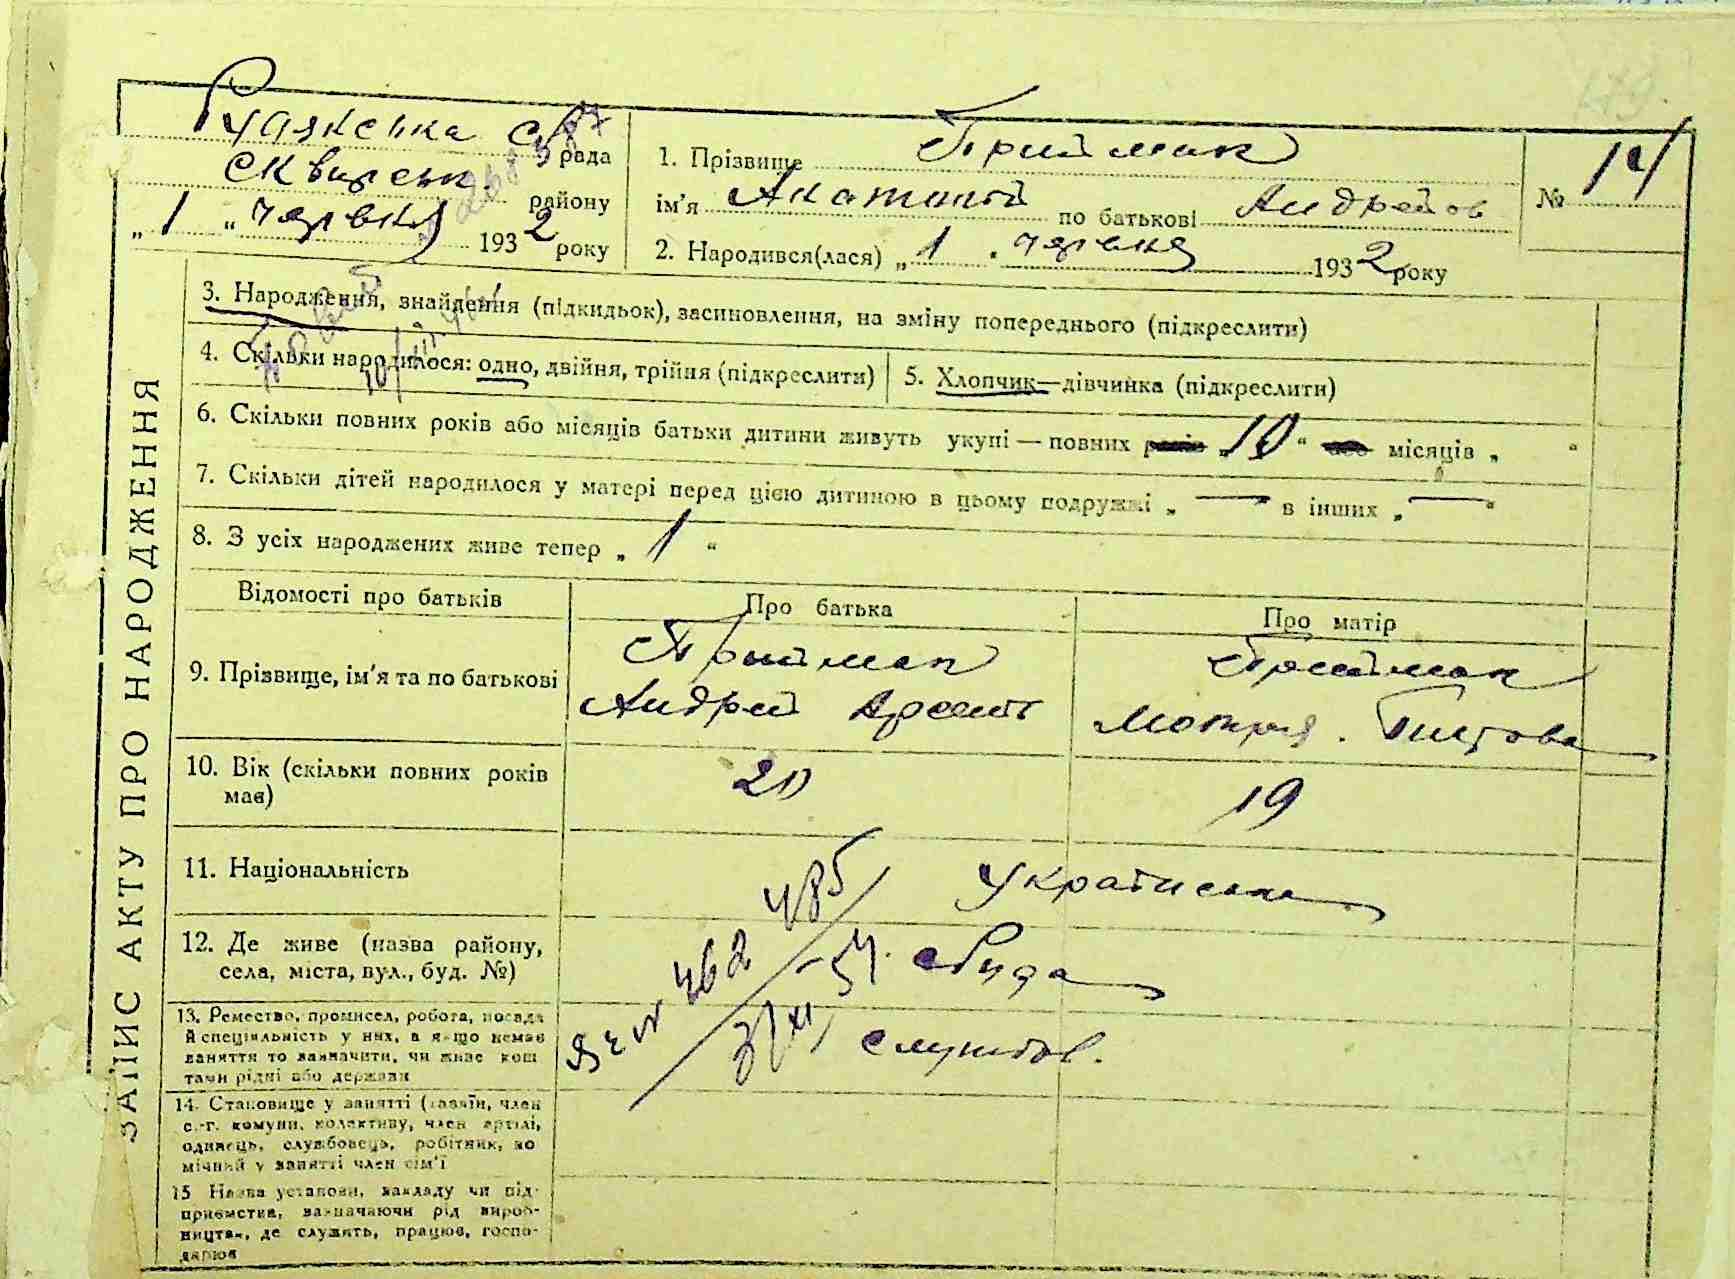 сквирськ. рада
району
„ 1 „ червня 1932 року
1. Прізвище Приймак
ім'я Анатолій по батькові Андрейов
№ 14
2. Народився(лася) „ 1 „ червня 1932 року
3. Народження, знайдення (підкидьок), засиновлення, на зміну попереднього (підкреслити)
4. Скільки народилося: одно, двійня, трійня (підкреслити)
5. Хлопчик—дівчинка (підкреслити)
6. Скільки повних років або місяців батьки дитини живуть укупі — повних років „ 10 “ або місяців „ “
7. Скільки дітей народилося у матері перед цією дитиною в цьому подружжі „ — “ в інших „ — “
8. З усіх народжених живе тепер „ 1 “
ЗАПИС АКТУ ПРО НАРОДЖЕННЯ
Відомості про батьків
Про батька
Про матір
9. Прізвище, ім'я та по батькові
Приймак
Андрей
Приймак
Мотря
10. Вік (скільки повних років
має)
20
19
11. Національність
українська
12. Де живе (назва району,
села, міста, вул., буд. №)
с Руда
13. Ремество, промисел, робота, посада
й спеціяльність у них, а якщо немає
заняття то зазначити, чи живе кош
тами рідні або держави
службов.
14. Становище у занятті (хазяїн, член
с.-г. комуни, колективу, член артілі,
одинець, службовець, робітник, по
мічний у занятті член сім'ї
15 Назва установи, закладу чи під-
приємства, зазначаючи рід вироб-
ництва, де служить, працює, госпо-
дарює
485
462